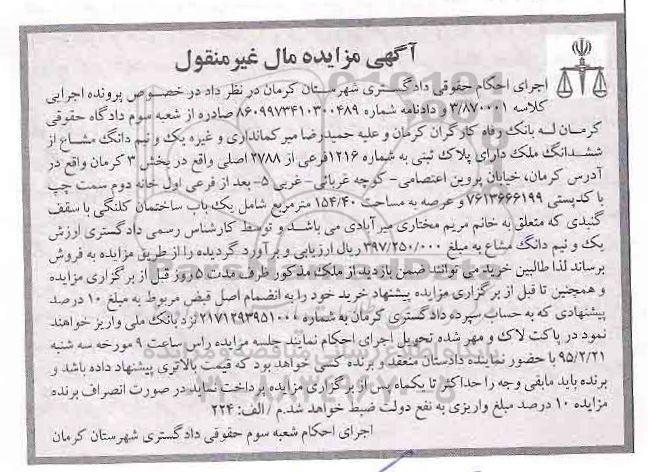 آگهی مزایده مال غیرمنقول
اجرای احکام حقوقی دادگستری شهرستان کرمان در نظر داد در خصوص پرونده اجرایی
کلاسه ۳/۸۷۰۰۰۱ و دادنامه شماره ۸۶۰۹۹۷۳۴۱۰۳۰۰۴۸۹ صادره از شعبه سوم دادگاه حقوقی
کرمان له بانک رفاه کارگران کرمان و علیه حمیدرضا میرکمانداری و غیره یک و نیم دانگ مشاع از
ششدانگ ملک دارای پلاک ثبتی به شماره ۱۲۱۶فرعی از ۲۷۸۸ اصلی واقع در بخش ۳ کرمان واقع در
آدرس کرمان، خیابان پروین اعتصامی- کوچه غربائی- غربی ۵- بعد از فرعی اول خانه دوم سمت چپ
با کدپستی ۷۶۱۳۶۶۶۱۹۹ و عرصه به مساحت ۱۵۴/۴۰ مترمربع شامل یک باب ساختمان کلنگی با سقف
گنبدی که متعلق به خانم مریم مختاری میرآبادی می باشد و توسط کارشناس رسمی دادگستری ارزش
یک و نیم دانگ مشاع به مبلغ ۳۹۷/۲۵۰/۰۰۰ ریال ارزیابی و برآورد گردیده را از طریق مزایده به فروش
برساند لذا طالبین خرید می توانند ضمن بازدید از ملک مذکور ظرف مدت ۵ روز قبل از برگزاری مزایده
و همچنین تا قبل از برگزاری مزایده پیشنهاد خرید خود را به انضمام اصل قبض مربوط به مبلغ ۱۰ درصد
پیشنهادی که به حساب سپرده دادگستری کرمان به شماره ۲۱۷۱۲۹۳۹۵۱۰۰۰ نزد بانک ملی واریز خواهند
نمود در پاکت لاک و مهر شده تحویل اجرای احکام نمایند جلسه مزایده راس ساعت ۹ مورخه سه شنبه
۹۵/۲/۲۱ با حضور نماینده دادستان منعقد و برنده کسی خواهد بود که قیمت بالاتری پیشنهاد داده باشد و
برنده باید مابقی وجه را حداکثر تا یکماه پس از برگزاری مزایده پرداخت نماید در صورت انصراف برنده
مزایده ۱۰ درصد مبلغ واریزی به نفع دولت ضبط خواهد شد.م / الف: ۲۲۴
اجرای احکام شعبه سوم حقوقی دادگستری شهرستان کرمان